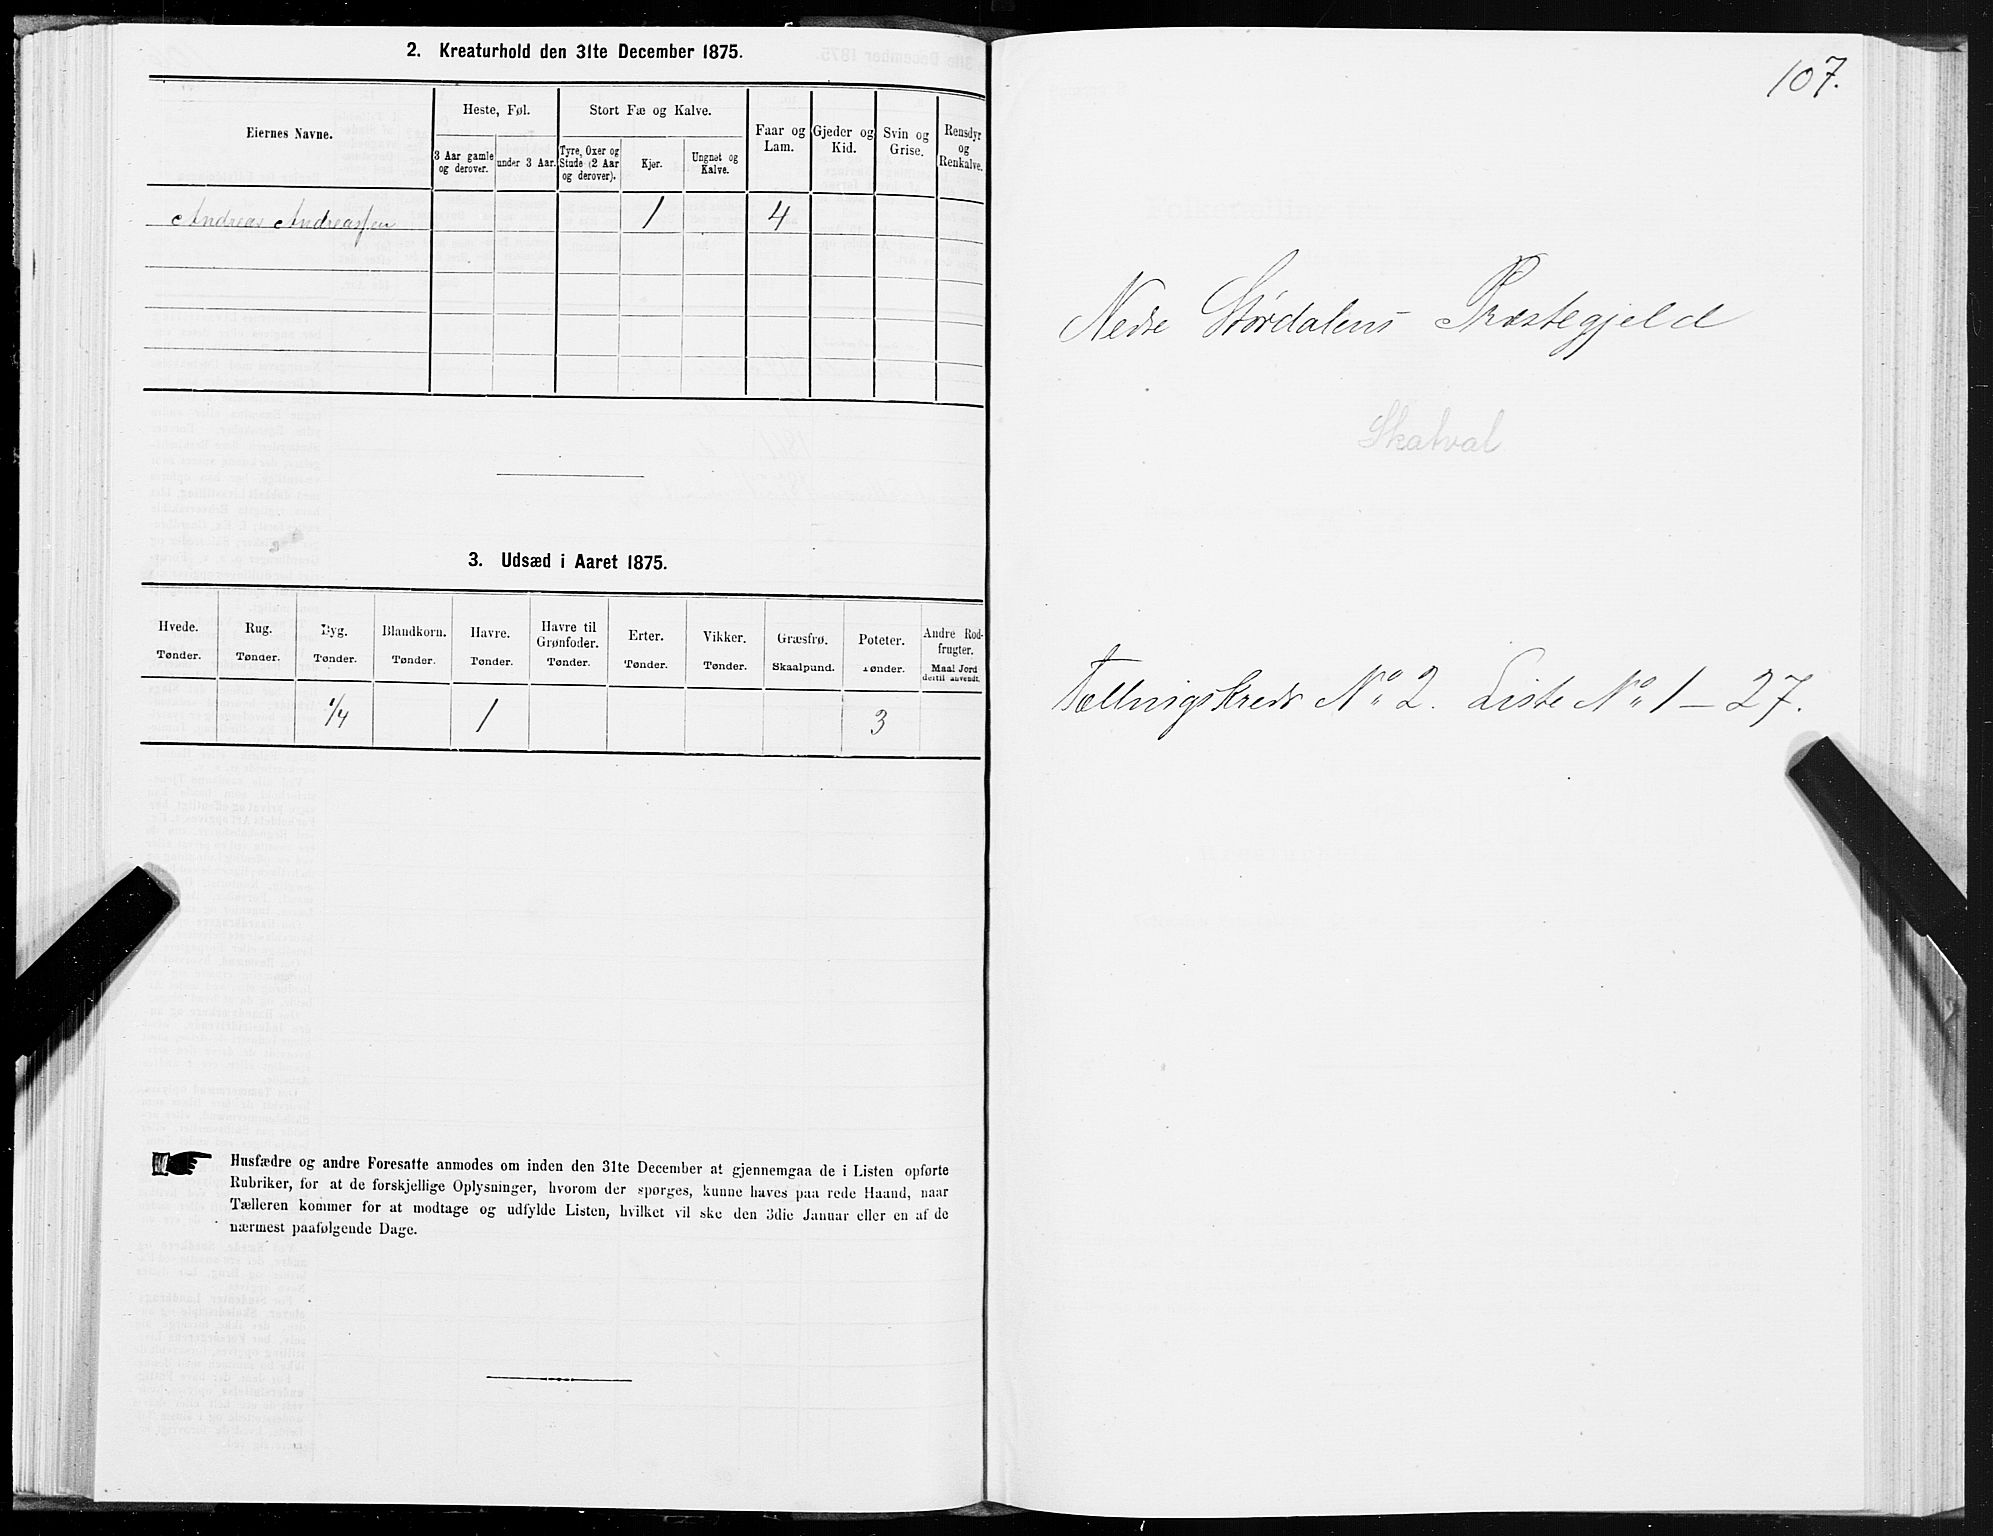 2. Kreaturhold den 31te December 1875.
Eiernes Navne.
Heste, Føl.
Stort Fæ og Kalve.
Faar og Lam.
Gjeder og Kid.
Svin og Grise.
Rensdyr og Renkalve.
3 Aar gamle og derover.
under 3 Aar.
Tyre, Oxer og Stude (2 Aar og derover).
Kjør.
Ungnøt og Kalve.
Andreas Andreassen 1 4
3. Udsæd i Aaret 1875.
Hvede. Rug. Byg. Blandkorn. Havre. Havre til Grønfoder. Erter. Vikker. Græsfrø. Poteter. Andre Rodfrugter.
Tønder. Tønder. Tønder. Tønder. Tønder. Tønder. Tønder. Tønder. Skaalpund. Tønder. Maal Jord dertil anvendt.
1/4 1 3
Husfædre og andre Foresatte anmodes om inden den 31te December at gjennemgaa de i Listen opførte
Rubriker, for at de forskjellige Oplysninger, hvorom der spørges, kunne haves paa rede Haand, naar
Tælleren kommer for at modtage og udfylde Listen, hvilket vil ske den 3die Januar eller en af de
nærmest paafølgende Dage.
107.
Nedre Størdalens Præstegjeld
Skatval
Tællningskreds No 2. Liste No 1 - 27.